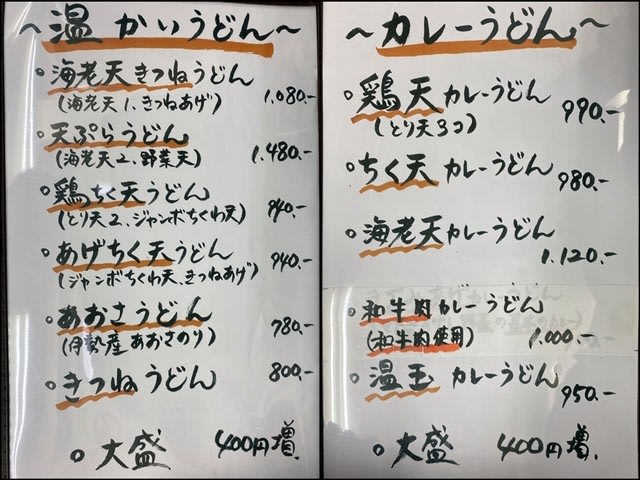 ~温かいうどん~
○海老天きつねうどん
(海老天1、きつねあげ) 1.080.-
○天ぷらうどん
(海老天2、野菜天) 1.480.-
○鶏ちく天うどん
(とり天2、ジャンボちくわ天) 940.-
○あげちく天うどん 940.-
(ジャンボちくわ天、きつねあげ)
○あおさうどん
(伊勢産あおさのり) 780.-
○きつねうどん 800.-
○大盛 400円増.
~カレーうどん~
○鶏天カレーうどん 990.-
(とり天3コ)
○ちく天カレーうどん 980.-
○海老天カレーうどん
1.120.-
○和牛肉カレーうどん
(和牛肉使用) 1.000.-
○温玉カレーうどん 950.-
○大盛 400円増.